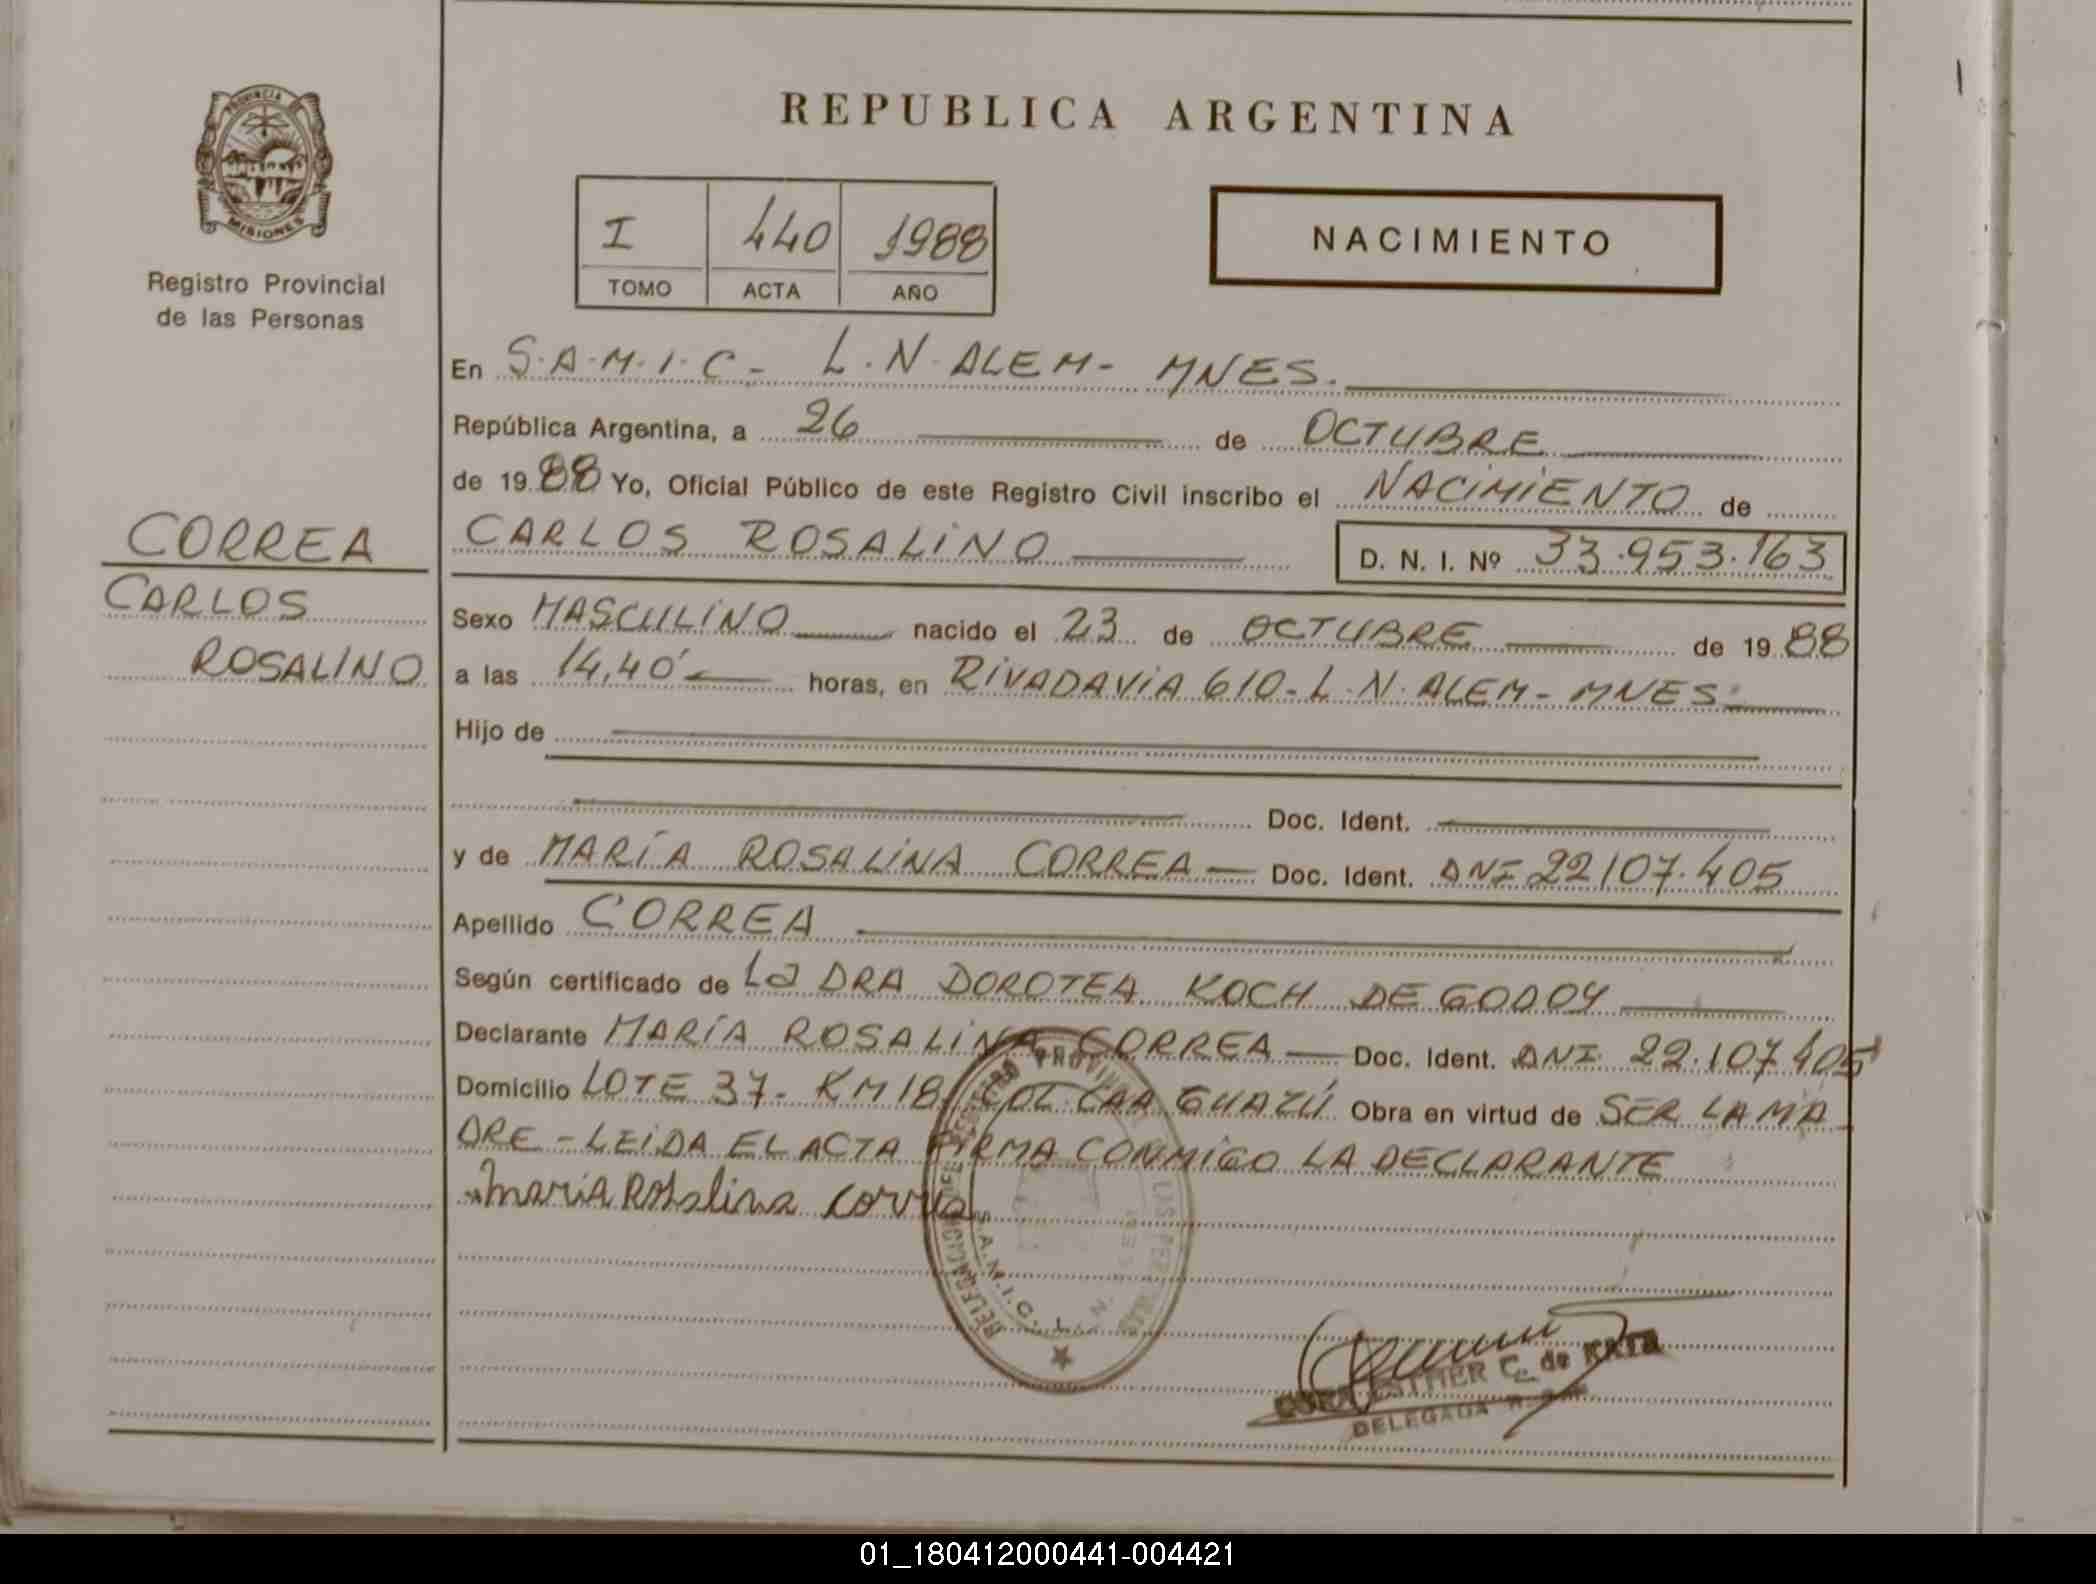 REPUBLICA ARGENTINA
PROVINCIA
MISIONES
Registro Provincial
de las Personas
I 440 1988
TOMO ACTA AÑO
NACIMIENTO
En S.A.M.I.C- L.N.ALEM- MNES.
República Argentina, a 26 de OCTUBRE
de 1988 Yo, Oficial Público de este Registro Civil inscribo el NACIMIENTO de
CORREA
CARLOS
ROSALINO
CARLOS ROSALINO D. N. I. Nº 33.953.163
Sexo MASCULINO nacido el 23 de OCTUBRE de 1988
a las 14,40' horas, en RIVADAVIA 610-L.N.ALEM-MNES.
Hijo de
Doc. Ident.
y de MARÍA ROSALINA CORREA Doc. Ident. DNI 22107.405
Apellido CORREA
Según certificado de La DRA DOROTEA KOCH DE GODOY
Declarante MARÍA ROSALINA CORREA Doc. Ident. DNI 22.107.405
Domicilio LOTE 37- KM 18. COL. CAA GUAZÚ Obra en virtud de SER LA MA
DRE - LEIDA EL ACTA FIRMA CONMIGO LA DECLARANTE
María Rosalina Correa
S.A.M.I.C. L. N. ALEM
ESTHER C. de
DELEGADA
01_180412000441-004421